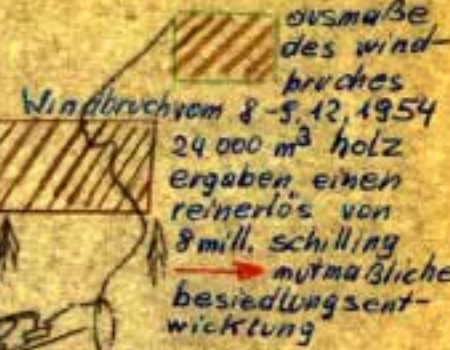 ausmaße
des wind-
bruches
Windbruch vom 8-9.12.1954
24 000 m³ holz
ergaben einen
reinerlös von
8 mill. schilling
mutmaßliche
besiedlungsent-
wicklung